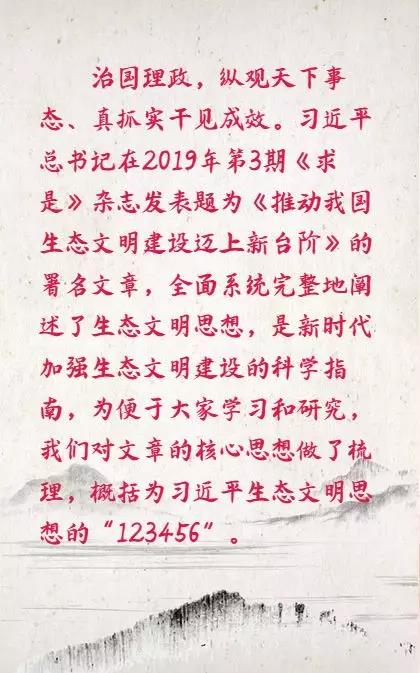 治国理政，纵观天下事
态、真抓实干见成效。习近平
总书记在2019年第3期《求
是》杂志发表题为《推动我国
生态文明建设迈上新台阶》的
署名文章，全面系统完整地阐
述了生态文明思想，是新时代
加强生态文明建设的科学指
南，为便于大家学习和研究，
我们对文章的核心思想做了梳
理，概括为习近平生态文明思
想的“123456”。